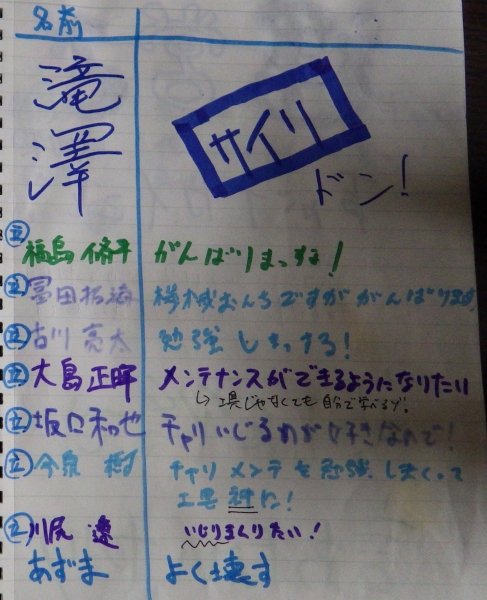 名前
滝澤
サイリ
ドン!
②福島 脩平 がんばりまっする!
②冨田拓海 機械おんちですががんばります
②古川 亮太 勉強しまっする!
②大島正暉 メンテナンスができるようになりたい
↳工具じゃなくても自分で学べるゾ!
②坂口和也 チャリいじるのが好きなので!
②今泉 樹 チャリメンテを勉強しまくって
工具神に!
②川尻 遼 いじりまくりたい!
あずま よく壊す